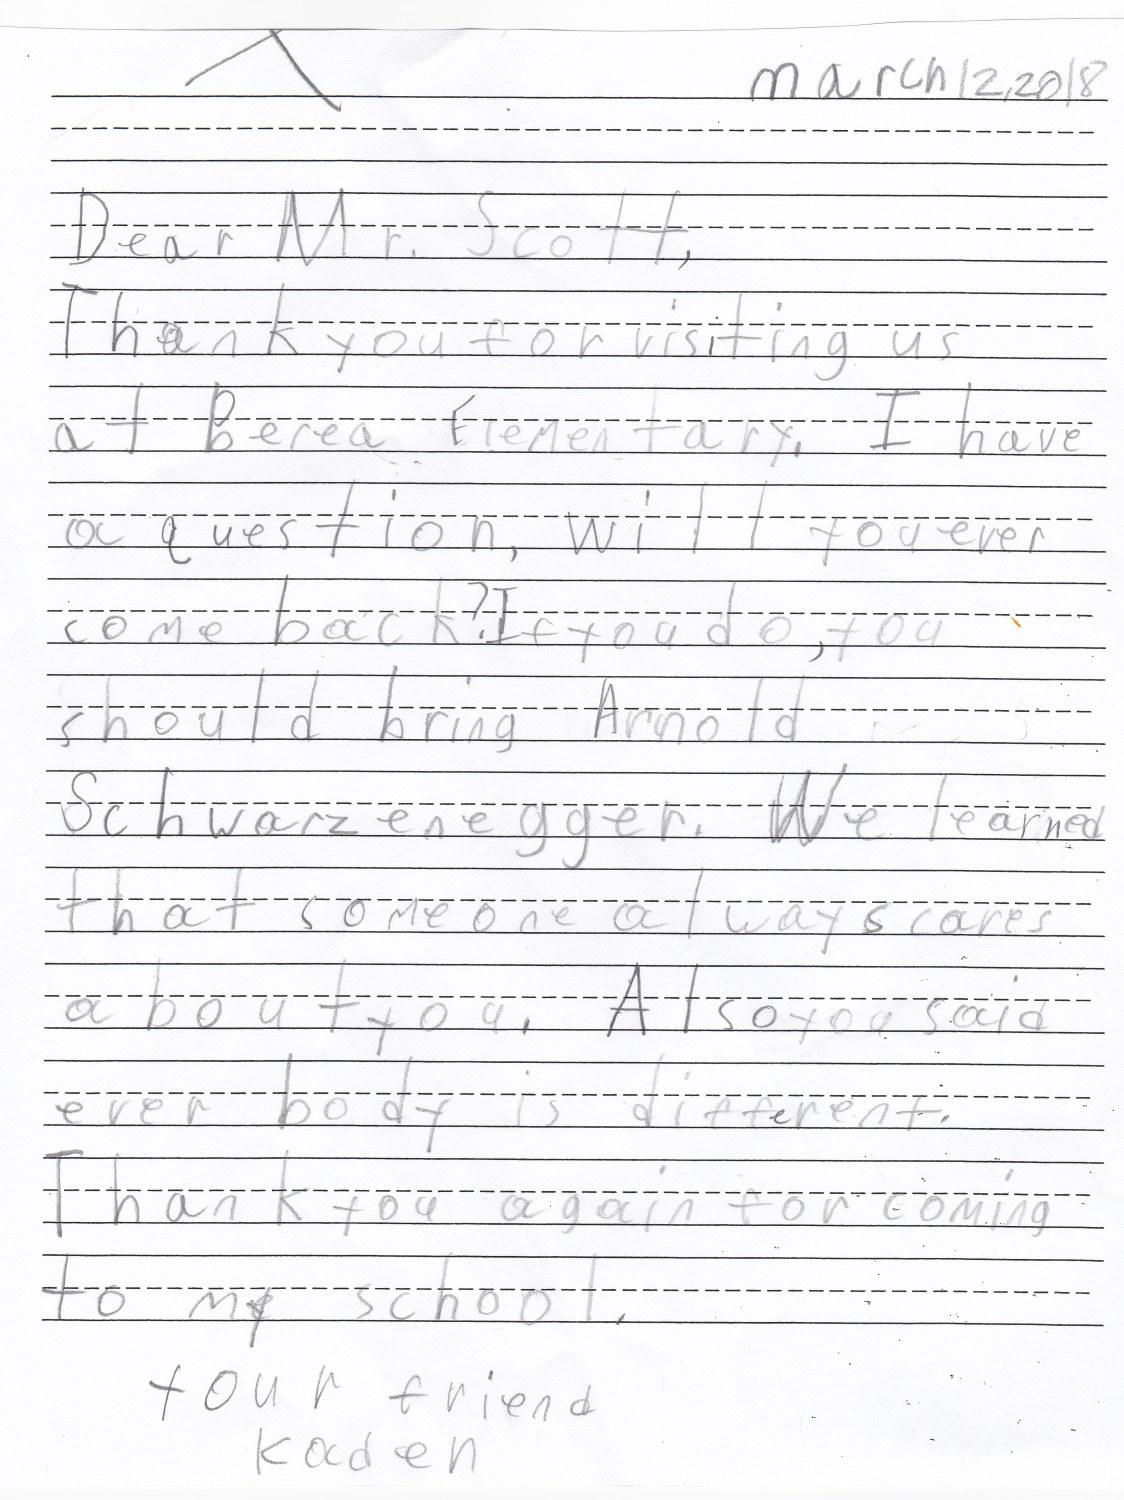 march 12, 2018
Dear Mr. Scott,
Thank you for visiting us
at Berea Elementary. I have
a question, will you ever
come back? If you do, you
should bring Arnold
Schwarzenegger. We learned
that someone always cares
about you. Also you said
ever body is different.
Thank you again for coming
to my school.
your friend
kaden